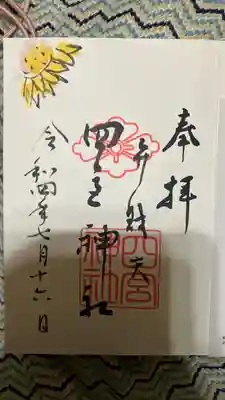 奉拝
弁財天
四宮神社
令和四年七月十六日
四宮神社